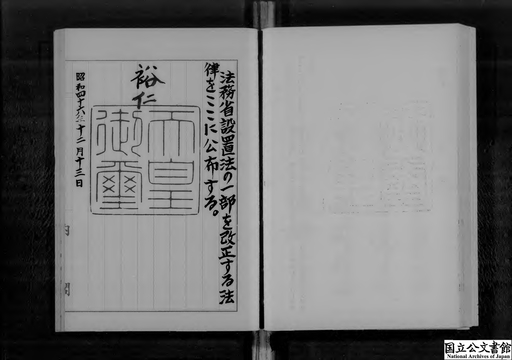 法務省設置法の一部を改正する法
律をここに公布する。
裕仁
天皇
御璽
昭和四十六年十二月十三日
内閣
国立公文書館
National Archives of Japan